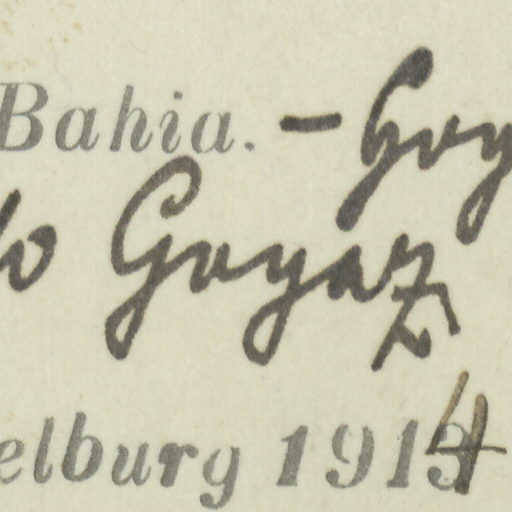 Bahia. - Goy
lo Goyaz
elburg 1914